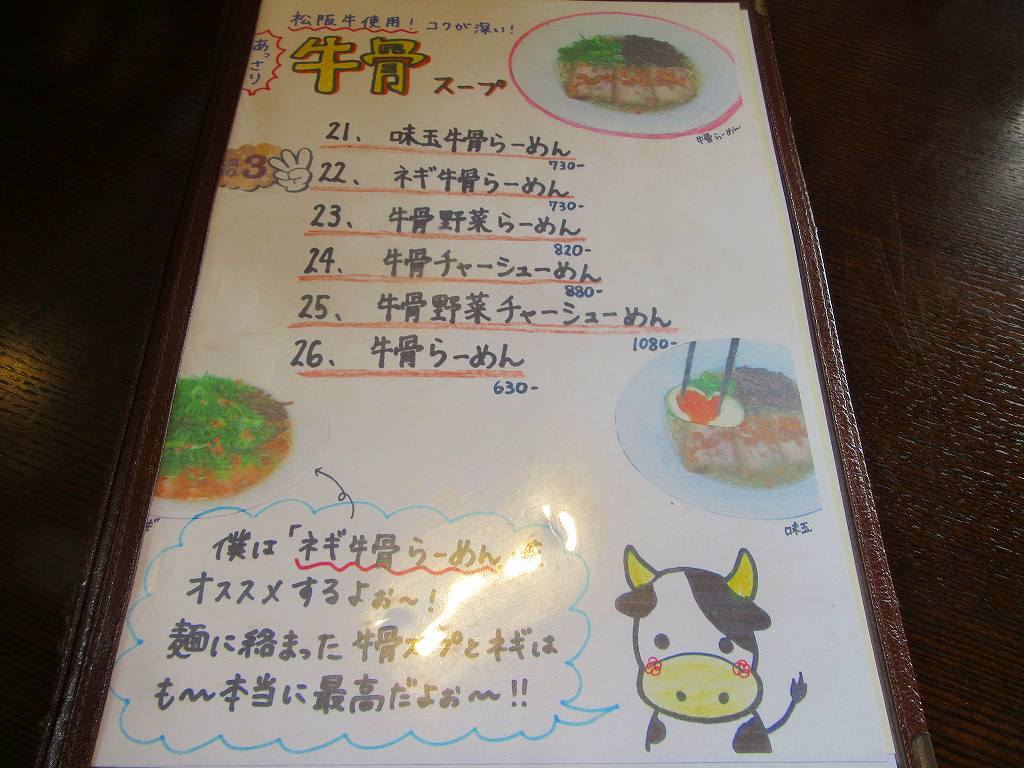 松阪牛使用！コクが深い！
あっさり
牛骨スープ
牛骨らーめん
21、味玉牛骨らーめん
730-
No.3
22、ネギ牛骨らーめん
730-
23、牛骨野菜らーめん
820-
24、牛骨チャーシューめん
880-
25、牛骨野菜チャーシューめん
1080-
26、牛骨らーめん
630-
味玉
僕は「ネギ牛骨らーめん
オススメするよぉ〜！
麺に絡まった牛骨スープとネギは
も〜本当に最高だよぉ〜!!